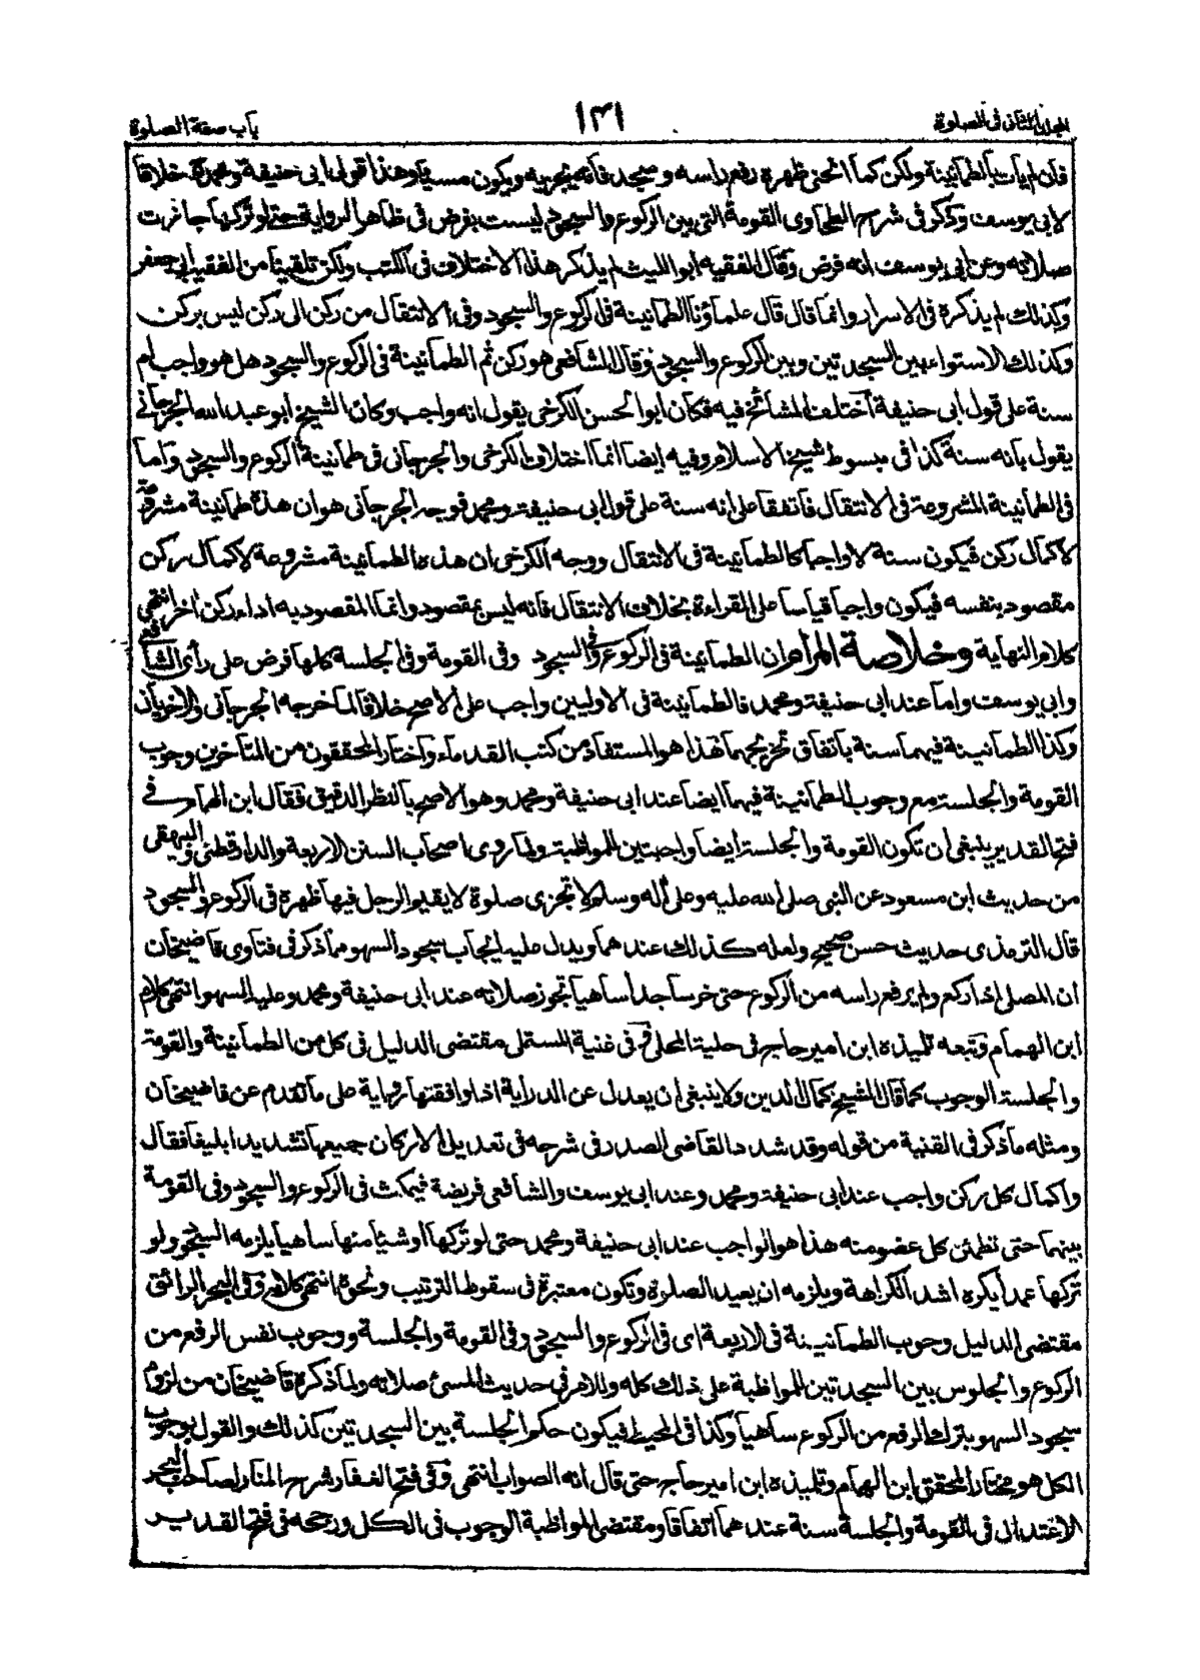 المجلد الثانى فى الصلوة ١٣١ باب صفة الصلوة
فان لم يأت بالطمانينة ولكن كما انحنى ظهره رفع راسه و سجد فانه يجزيه ويكون مسيئا وهذا قول ابى حنيفة ومحمد خلافا
لابى يوسف وذكر فى شرح الطحاوى القومة التى بين الركوع والسجود ليست بفرض فى ظاهر الرواية حتى لو تركها جازت
صلاته وعن ابى يوسف انه فرض وقال الفقيه ابو الليث لم يذكر هذا الاختلاف فى الكتب ولكن تلقينا من الفقيه ابى جعفر
وكذلك لم يذكره فى الاسرار وانما قال قال علماؤنا الطمانينة فى الركوع والسجود وفى الانتقال من ركن الى ركن ليس بركن
وكذلك الاستواء بين السجدتين وبين الركوع والسجود وقال الشافعى هو ركن ثم الطمانينة فى الركوع والسجود هل هو واجب ام
سنة على قول ابى حنيفة اختلف المشائخ فيه فكان ابو الحسن الكرخى يقول انه واجب وكان الشيخ ابو عبد الله الجرجانى
يقول بانه سنة كذا فى مبسوط شيخ الاسلام وفيه ايضا انما اختلاف الكرخى والجرجانى فى طمانينة الركوع والسجود واما
فى الطمانينة المشروعة فى الانتقال فاتفقا على انه سنة على قول ابى حنيفة ومحمد فوجه الجرجانى هو ان هذه طمانينة مشروعة
لاكمال ركن فيكون سنة لا واجبا كالطمانينة فى الانتقال ووجه الكرخى ان هذه الطمانينة مشروعة لاكمال ركن
مقصود بنفسه فيكون واجبا قياسا على القراءة بخلاف الانتقال فانه ليس بمقصود وانما المقصود به اداء ركن اخر انتهى
كلام النهاية وخلاصة المرام ان الطمانينة فى الركوع والسجود وفى القومة وفى الجلسة كلها فرض على رأى الشافعى
وابى يوسف واما عند ابى حنيفة ومحمد فالطمانينة فى الاوليين واجب على الاصح خلافا لما خرجه الجرجانى والاخريان
وكذا الطمانينة فيهما سنة باتفاق تخريجهما هذا هو المستفاد من كتب القدماء واختار المحققون من المتاخرين وجوب
القومة والجلسة مع وجوب الطمانينة فيهما ايضا عند ابى حنيفة ومحمد وهو الاصح بالنظر الدقيق فقال ابن الهمام فى
فتح القدير ينبغى ان تكون القومة والجلسة ايضا واجبتين للمواظبة ولما روى اصحاب السنن الاربعة والدارقطنى والبيهقى
من حديث ابن مسعود عن النبى صلى الله عليه وعلى آله وسلم لا تجزى صلوة لا يقيم الرجل فيها ظهره فى الركوع والسجود
قال الترمذى حديث حسن صحيح ولعله كذلك عندهما ويدل عليه ايجاب سجود السهو مما ذكر فى فتاوى قاضيخان
ان المصلى اذا ركع ولم يرفع راسه من الركوع حتى خر ساجدا ساهيا تجوز صلاته عند ابى حنيفة ومحمد وعليه السهو انتهى كلام
ابن الهمام وتبعه تلميذه ابن امير حاج فى حلية المحلى وفى غنية المستملى مقتضى الدليل فى كل من الطمانينة والقومة
والجلسة الوجوب كما قال الشيخ كمال الدين ولا ينبغى ان يعدل عن الدراية اذا وافقتها رواية على ما تقدم عن قاضيخان
ومثله ما ذكر فى القنية من قوله وقد شدد القاضى الصدر فى شرحه فى تعديل الاركان جميعها تشديدا بليغا فقال
واكمال كل ركن واجب عند ابى حنيفة ومحمد وعند ابى يوسف والشافعى فريضة فيمكث فى الركوع والسجود وفى القومة
بينهما حتى تطمئن كل عضو منه هذا هو الواجب عند ابى حنيفة ومحمد حتى لو تركها او شيئا منها ساهيا يلزمه السجود ولو
تركها عمدا يكره اشد الكراهة ويلزمه ان يعيد الصلوة وتكون معتبرة فى سقوط الترتيب ونحوه انتهى كلامه وفى البحر الرائق
مقتضى الدليل وجوب الطمانينة فى الاربعة اى فى الركوع والسجود وفى القومة والجلسة ووجوب نفس الرفع من
الركوع والجلوس بين السجدتين للمواظبة على ذلك كله وللامر فى حديث المسئ صلاته ولما ذكره قاضيخان من لزوم
سجود السهو بترك الرفع من الركوع ساهيا وكذا فى المحيط فيكون حكم الجلسة بين السجدتين كذلك والقول بوجوب
الكل هو مختار المحقق ابن الهمام وتلميذه ابن امير حاج حتى قال انه الصواب انتهى وفى فتح الغفار شرح المنار لصاحب البحر
الاعتدال فى القومة والجلسة سنة عندهما اتفاقا ومقتضى المواظبة الوجوب فى الكل ورجحه فى فتح القدير